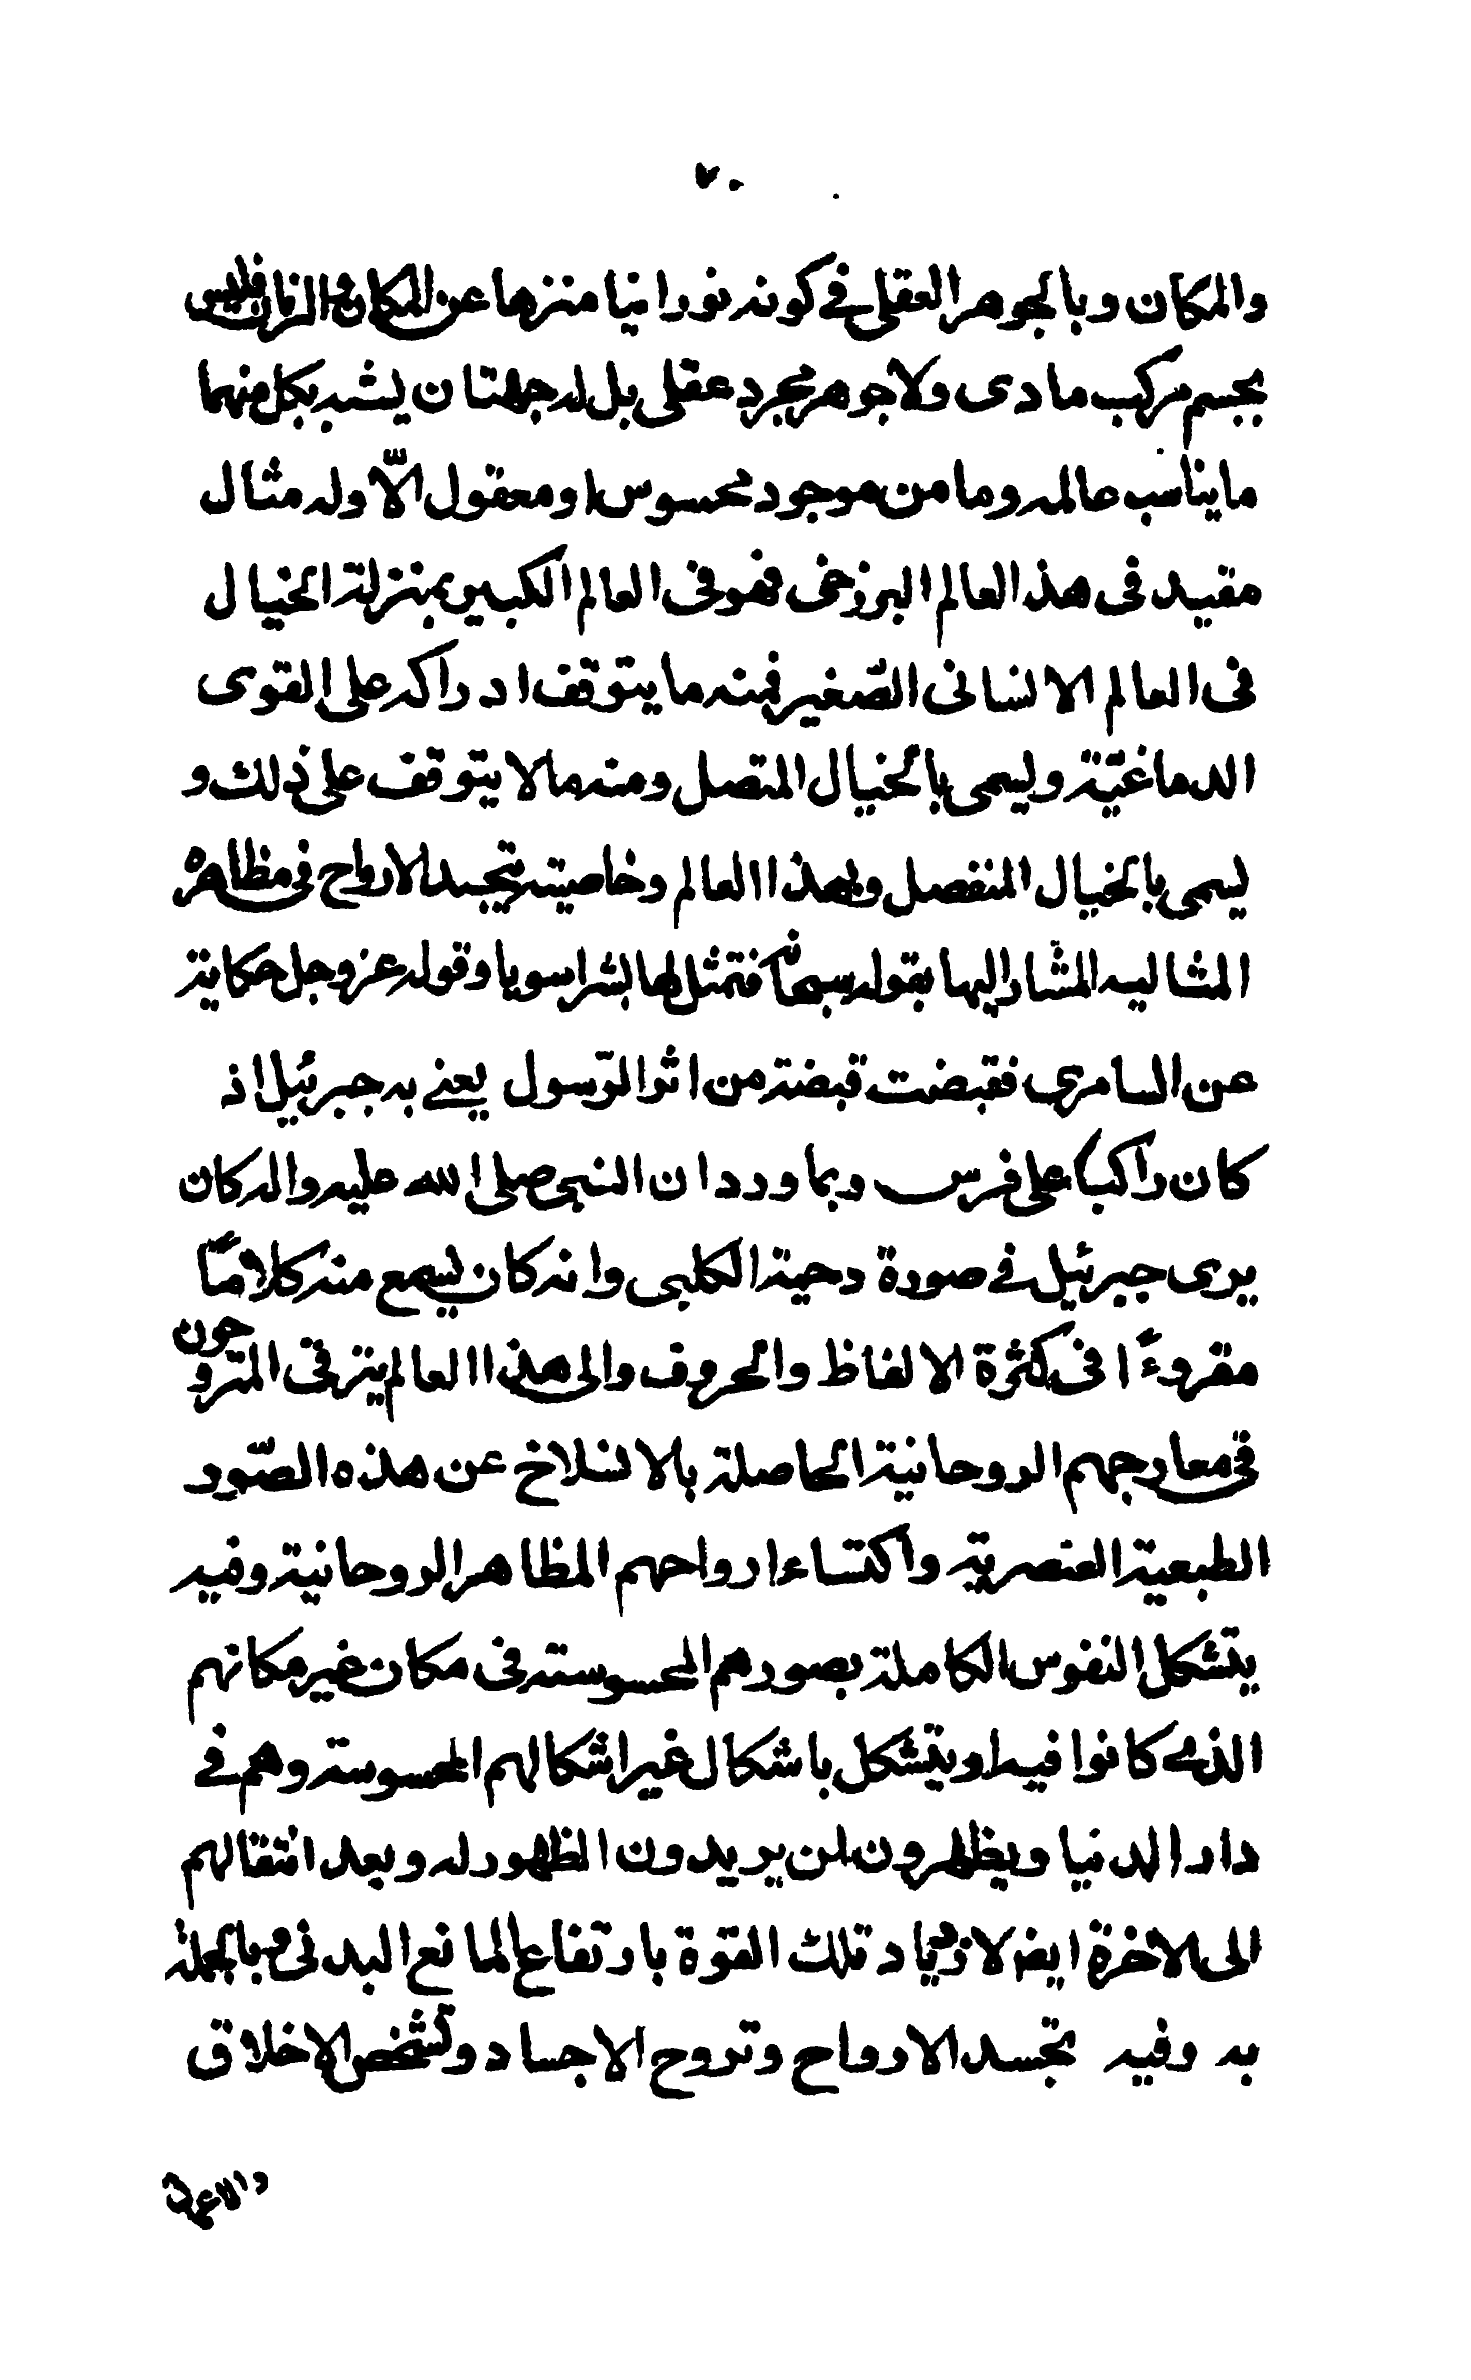 ٧٠
والمكان وبالجوهر العقلى في كونه نورانيا منزها عن المكان والزمان فليس
بجسم مركب مادى ولا جوهر مجرد عقلى بل له جهتان يشبه بكل منهما
ما يناسب عالمه وما من موجود محسوس او معقول الّا وله مثال
مقيد فى هذ العالم البرزخى فهو فى العالم الكبير بمنزلة الخيال
فى العالم الانسانى الصّغير فمنه ما يتوقف ادراكه على القوى
الدماغيّة ويسمى بالخيال المتصل ومنه ما لا يتوقف على ذلك و
يسمى بالخيال المنفصل وبهذا العالم وخاصيته يتجسد الارواح فى مظاهره
المثاليه المشار اليها بقوله سبحانه فتمثل لها بشرا سويا وقوله عز وجل حكاية
عن السامري فقبضت قبضة من اثر الرّسول يعنے به جبرئيل اذ
كان راكبا على فرس وبما ورد ان النبى صلى الله عليه واله كان
يرى جبرئيل فے صورة دحية الكلبى وانه كان يسمع منه كلامًا
مقروءًا فى كثرة الالفاظ والحروف والى هذا العالم يترقى المتروحون
فى معارجهم الروحانية الحاصلة بالانسلاخ عن هذه الصّور
الطبعية العنصرية واكتساء ارواحهم المظاهر الروحانية وفيه
يتشكل النفوس الكاملة بصورهم المحسوسته فى مكان غير مكانهم
الذے كانوا فيه او يتشكل باشكال غير اشكالهم المحسوسته وهم فے
دار الدنيا ويظهرون لمن يريدون الظهور له وبعد انتقالهم
الى الاخرة ايضا لازدياد تلك القوة بارتفاع المانع البدنى وبالجملة
به وفيه تجسد الارواح وتروح الاجساد وتشخص الاخلاق